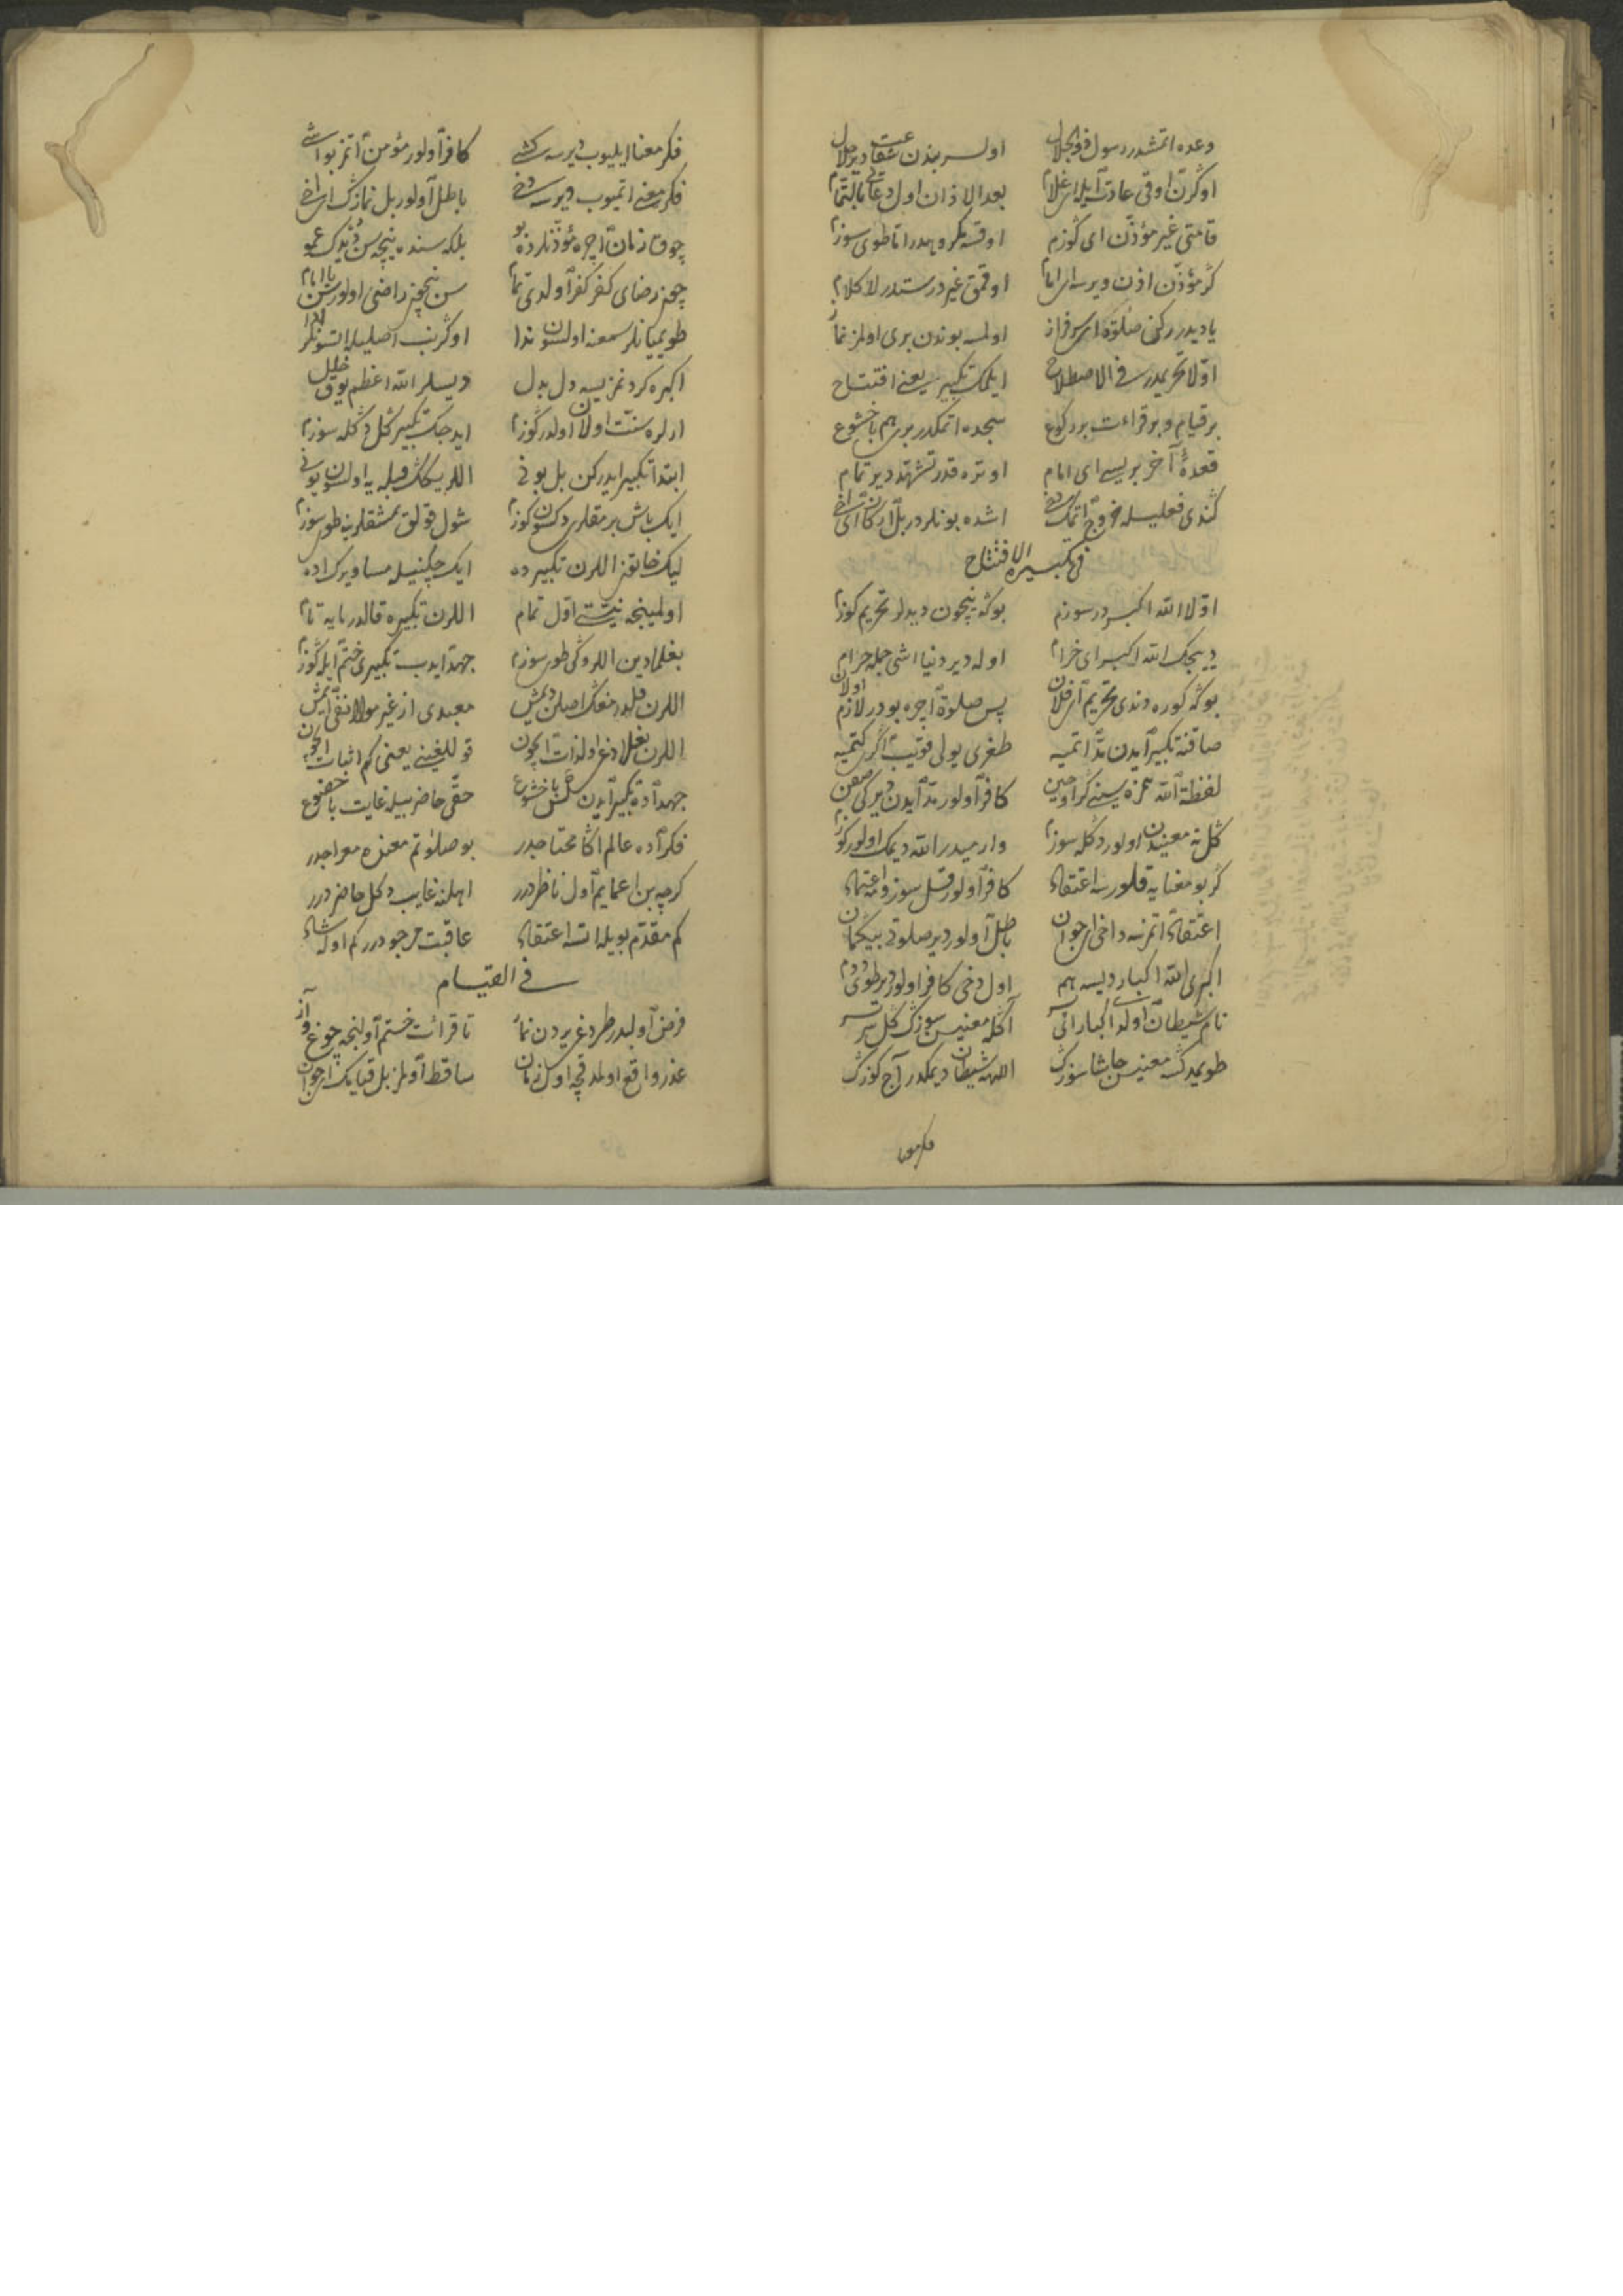 وعده اتمشدر رسول ذو الجلال اولسر بندن شفاعت دیر حلال
اوکرن اوقی عادت ایله ای غلام بعد الاذان اول دعایی بالتمام
قامتی غیر مؤذن ای کوزم اوقسه مکروهدر اتا طوی سوزم
کر مؤذن اذن ویرسه ای امام اوقمق غیر درستدر لا کلام
یادیدر رکن صلوة ای سرفراز اولمسه بوندن بری اولمز نماز
اولا تحریمدر فی الاصطلاح ایلمک تکبیر یعنی افتتاح
بر قیام و بر قراءت بر رکوع سجده اتمکدر بری هم با خشوع
قعدهٔ آخر بریسی ای امام اوتره قدر تشهد دیر تمام
کندی فعلیله خروج اتمک دخی اشده بونلردر بل ارکان ای اخی
فی تکبیرة الافتتاح
اولا الله اکبردر سوزم بوکه نیچون دیدلر تحریم کوزم
دییجک الله اکبر ای خرام اوله دیر دنیا اشی جمله حرام
بوکه کوره دندی تحریم ای فلان پس صلوة اچره بودر لازم اولان
صاقنه تکبیر ایدن مد اتمیه طغری یولی قویب اکری کتمیه
لفظة الله همزه سینی کر اوحین کافر اولور مد ایدن دیر کی
کل نه معنیدن اولور دکله سوزم وارمیدر الله دیمک اولور کوزم
کر بو معنایه قلورسه اعتقاد کافر اولور قتل سوزومه اعتماد
اعتقاد اتمزسه داخی ای جوان باطل اولور دیر صلوتی بیکمان
اکبری الله اکبار دیسه هم اول دخی کافر اولور دیر طوی ددم
نام شیطان اولدا اکبار آنی اکله معنیسن سوزک کل
طویمدک معنیسن حاشا سوزک اللهه شیطان دیمکدر آج کوزک
فکر معنا
فکر معنا ایلیوب دیرسه کشی کافر اولور مؤمن اتمز بو اشی
فکر معنی اتمیوب دیرسه دخی باطل اولور بل نمازک ای اخی
چوق زمان اچره مؤذنلرده بو بلکه سنده نیچه سن دیدک عمو
چون رضای کفر کفر اولدی تما سن نیچون راضی اولورسن یا امام
طویمیانلر سمعنه اولسون ندا اوکرنب اصلیله اتسونلر ادا
اکبره کرد نمزیسه دل بدل دیسلر الله اعظم یوق خلل
ارلره سنت اولان اولدر کوزم ایدجک تکبیر کل دکله سوزم
ابتدا تکبیر ایدرکن بل بونی اللریکک قبله یه اولسون یونی
ایک باش برمقلری دکسون کوزم شول قولق یمشقلرینه طوی سوزم
لیک خاتون اللرن تکبیرده ایک چکنیله مساوی برک اده
اولمینجه نیتی اول تمام اللرن تکبیره قالدرمایه تام
بغلمادین اللروکی طوی سوزم جهد ایدب تکبیری ختم ایله کوزم
اللرن قلدرمغک اصلن دیمش معبدی از غیر مولا نفی ایمش
اللرن بغلادغی اولذات ایچون قوللغینی یعنی کم اثبات ایچون
جهد اده تکبیر ایدن کس با خشوع حقی حاضر بیله غایت با خضوع
فکر اده عالم اکا محتاجدر بو صلوتم معنده معراجدر
کرچه بن اعمایم اول ناظردرر اهلنه غایب دکل حاضردرر
کم مقدم بویله اتسه اعتقاد عاقبت مرجودرر کم اوله شاد
فی القیام
فرض اولبدر طردغی یردن نماز تا قرائت ختم اولنجه چوغ و آز
عذر واقع اولمدقچه اول زمان ساقط اولمز بل قیامک ای جوان